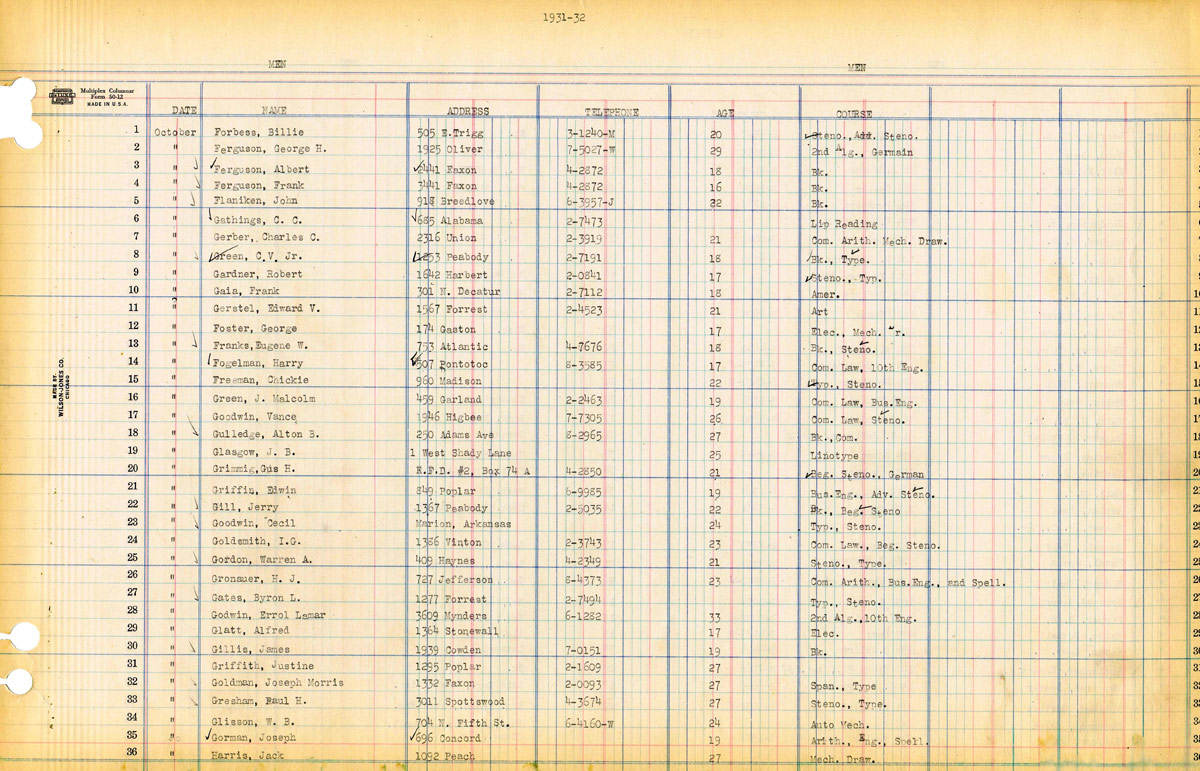 1931-32
MEN MEN
Multiplex Columnar
Form 50-12
MADE IN U.S.A.
DATE NAME ADDRESS TELEPHONE AGE COURSE
1 October Forbess, Billie 505 E.Trigg 3-1240-M 20 Steno., Adv. Steno.
2 " Ferguson, George H. 1925 Oliver 7-5027-W 29 2nd Alg., Germain
3 " Ferguson, Albert 3441 Faxon 4-2872 18 Bk.
4 " Ferguson, Frank 3441 Faxon 4-2872 16 Bk.
5 " Flaniken, John 918 Breedlove 6-3957-J 22 Bk.
6 " Gathings, C. C. 685 Alabama 2-7473 Lip Reading
7 " Gerber, Charles C. 2316 Union 2-3919 21 Com. Arith. Mech. Draw.
8 " Green, C.V. Jr. 1253 Peabody 2-7191 18 Bk., Type.
9 " Gardner, Robert 1642 Harbert 2-0841 17 Steno., Typ.
10 " Gaia, Frank 301 N. Decatur 2-7112 18 Amer.
11 " Gerstel, Edward V. 1567 Forrest 2-4523 21 Art
12 " Foster, George 174 Gaston 17 Elec., Mech. r.
13 " Franks,Eugene W. 753 Atlantic 4-7676 18 Bk., Steno.
14 " Fogelman, Harry 507 Pontotoc 8-3585 17 Com. Law, 10th Eng.
15 " Freeman, Chickie 960 Madison 22 Typ., Steno.
16 " Green, J. Malcolm 459 Garland 2-2463 19 Com. Law, Bus.Eng.
17 " Goodwin, Vance 1946 Higbee 7-7305 26 Com. Law, Steno.
18 " Gulledge, Alton B. 250 Adams Ave 8-2965 27 Bk.,Com.
19 " Glasgow, J. B. 1 West Shady Lane 25 Linotype
20 " Grimmig,Gus H. R.F.D. #2, Box 74 A 4-2850 21 Beg. Steno., German
21 " Griffin, Edwin 849 Poplar 6-9985 19 Bus.Eng., Adv. Steno.
22 " Gill, Jerry 1367 Peabody 2-5035 22 Bk., Beg. Steno
23 " Goodwin, Cecil Marion, Arkansas 24 Typ., Steno.
24 " Goldsmith, I.G. 1386 Vinton 2-3743 23 Com. Law., Beg. Steno.
25 " Gordon, Warren A. 409 Haynes 4-2349 21 Steno., Type.
26 " Gronauer, H. J. 727 Jefferson 8-4373 23 Com. Arith., Bus.Eng., and Spell.
27 " Gates, Byron L. 1277 Forrest 2-7494 Typ., Steno.
28 " Godwin, Errol Lamar 3609 Mynders 6-1282 33 2nd Alg.,10th Eng.
29 " Glatt, Alfred 1364 Stonewall 17 Elec.
30 " Gillis, James 1939 Cowden 7-0151 19 Bk.
31 " Griffith, Justine 1295 Poplar 2-1609 27
32 " Goldman, Joseph Morris 1332 Faxon 2-0093 27 Span., Type
33 " Gresham, Paul H. 3011 Spottswood 4-3674 27 Steno., Type.
34 " Glisson, W. B. 704 N. Fifth St. 6-4160-W 24 Auto Mech.
35 " Gorman, Joseph 696 Concord 19 Arith., Eng., Spell.
36 " Harris, Jack 1092 Peach 27 Mech. Draw.
MFGD BY.
WILSON-JONES CO.
CHICAGO